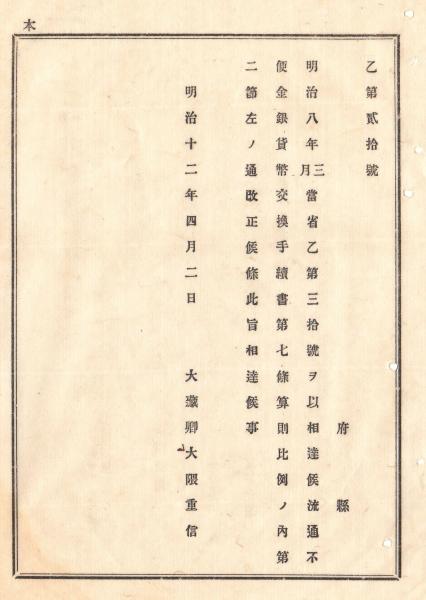 本
乙第貳拾號
府縣
明治八年三月當省乙第三拾號ヲ以相達候流通不
便金銀貨幣交換手續書第七條算則比例ノ內第
二節左ノ通改正候條此旨相達候事
明治十二年四月二日　大藏卿大隈重信